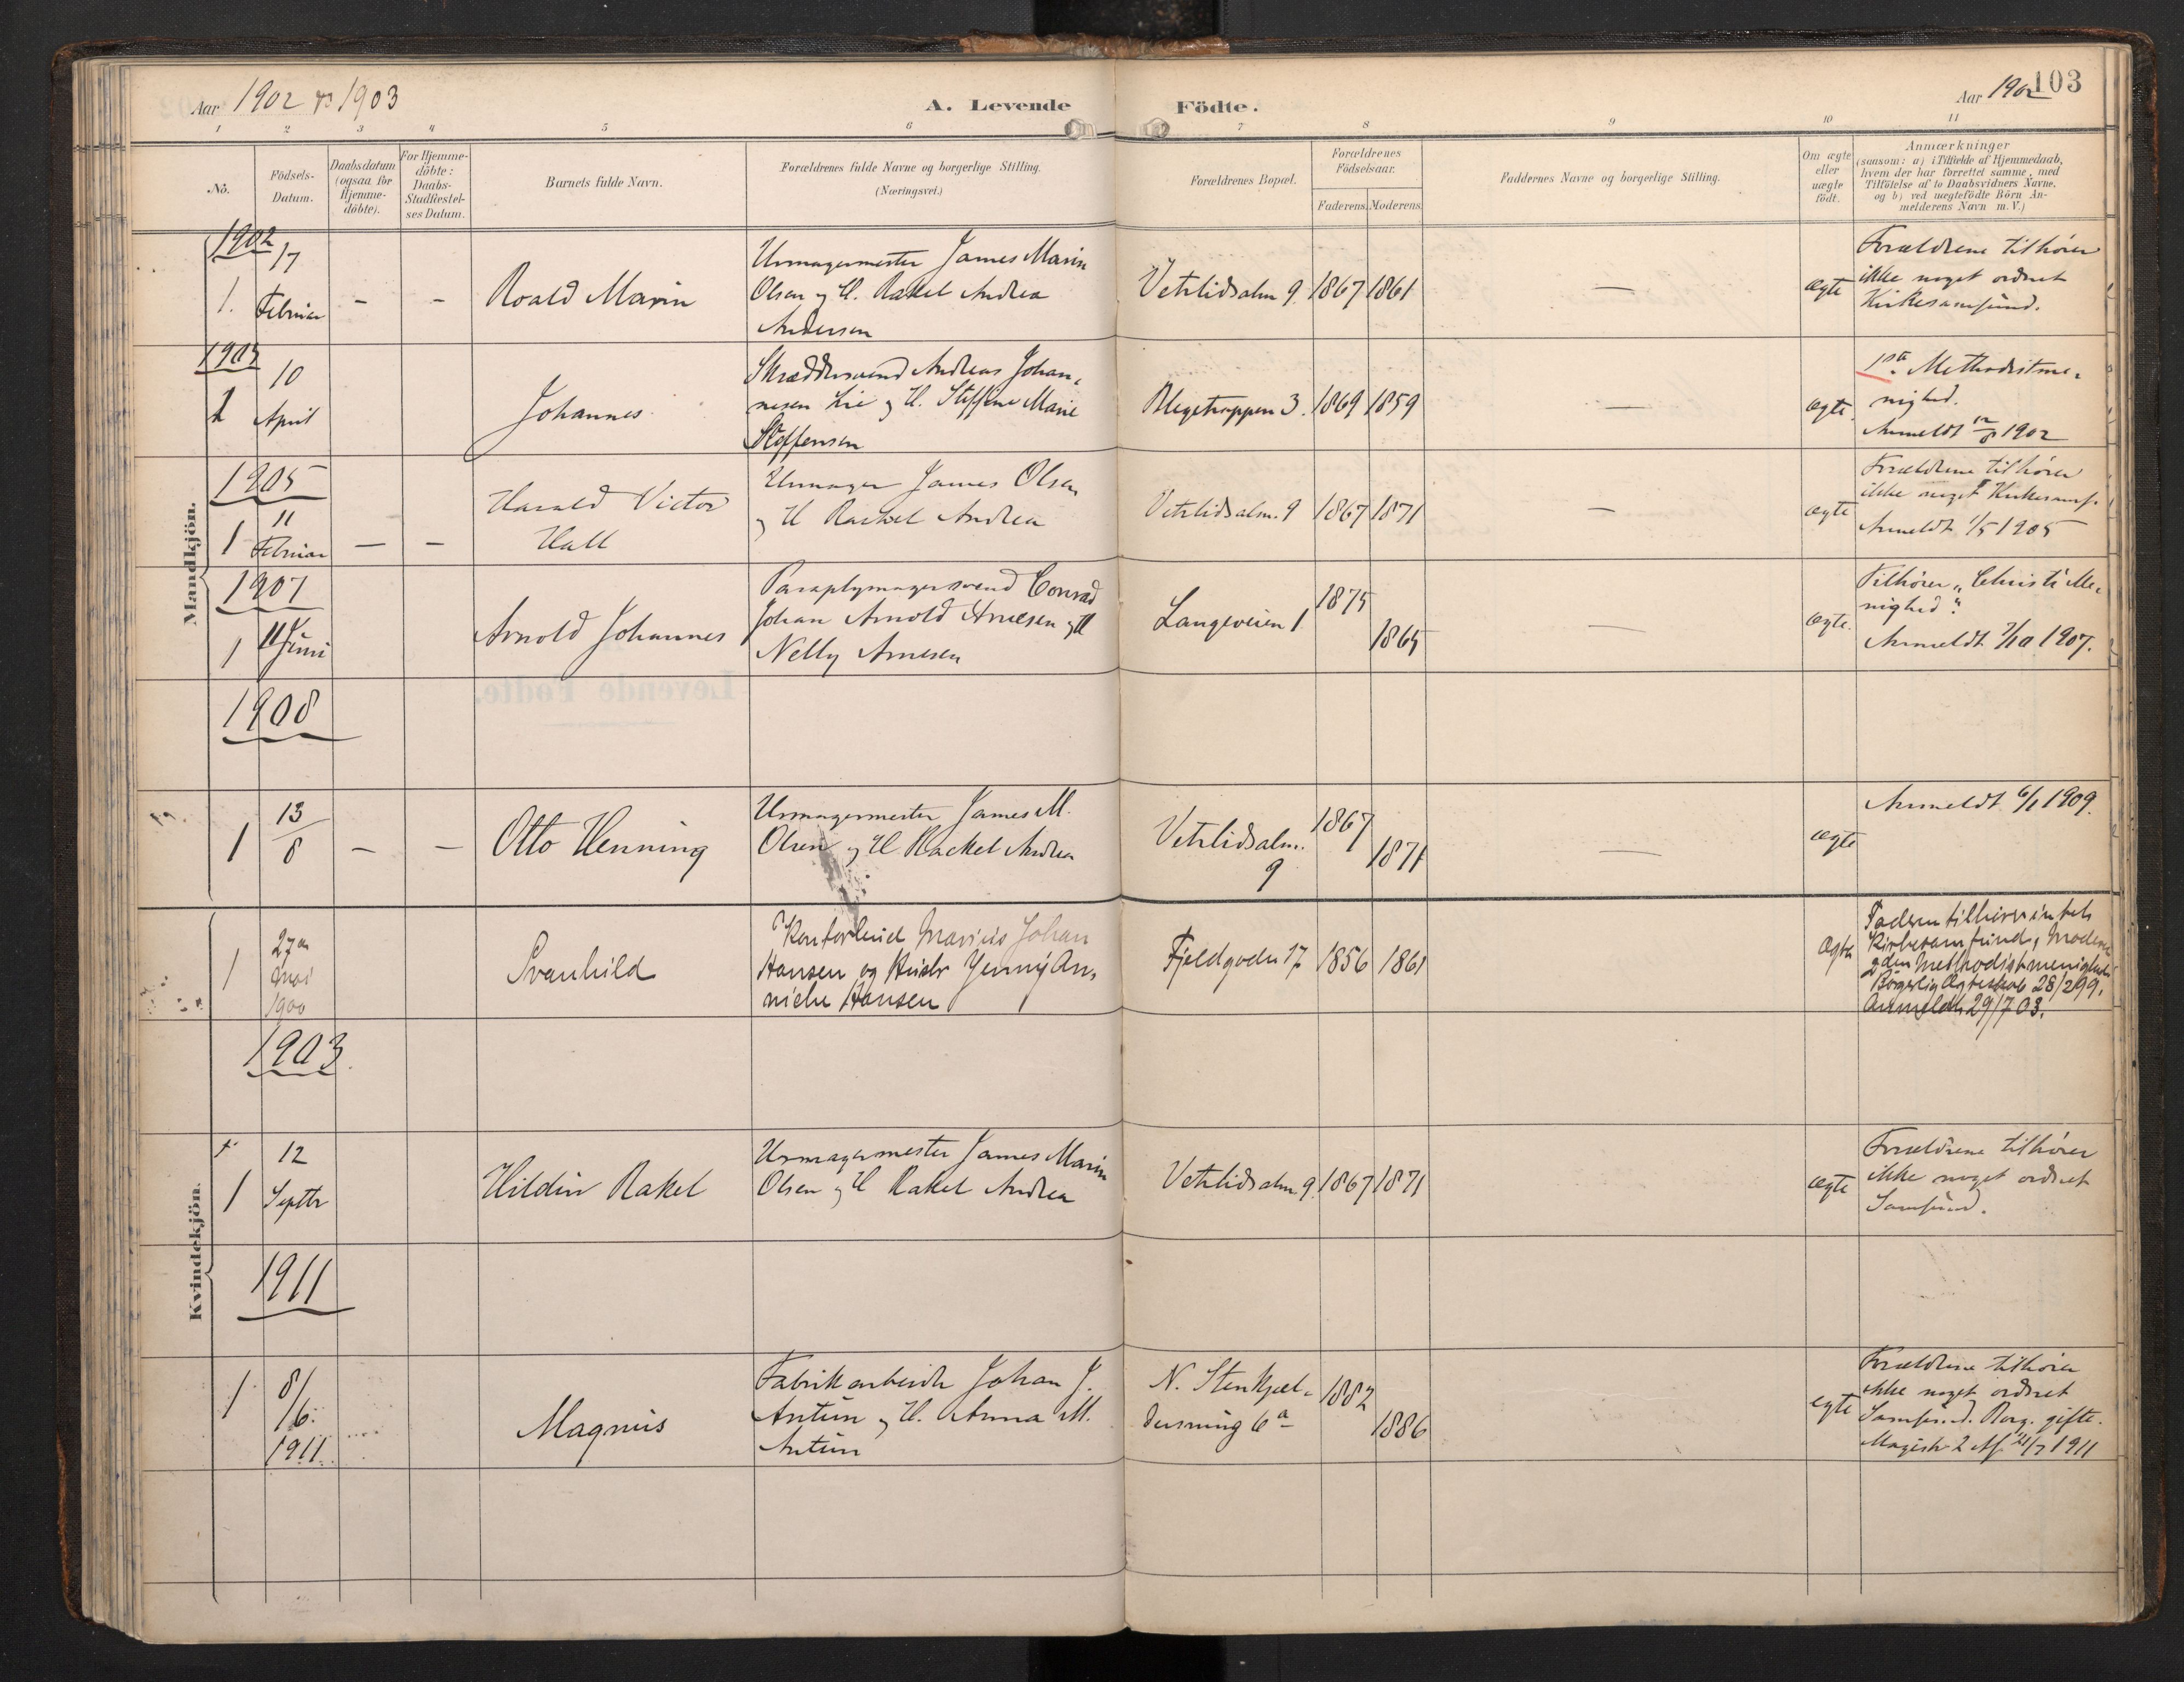 Aar 1902 og 1903
A. Levende Födte.
Aar 1902
103
1 2 3 4 5 6 7 8 9 10 11
No.
Födsels-
Datum.
Daabsdatum
(ogsaa for
Hjemme-
döbte).
For Hjemme-
döbte:
Daabs-
Stadfæstel-
ses Datum.
Barnets fulde Navn.
Forældrenes fulde Navne og borgerlige Stilling.
(Næringsvei.)
Forældrenes Bopæl.
Forældrenes
Födselsaar.
Faderens. Moderens.
Faddernes Navne og borgerlige Stilling.
Om ægte
eller
uægte
födt.
Anmærkninger
(saasom: a) i Tilfælde af Hjemmedaab,
hvem der har forrettet samme, med
Tilföielse af to Daabsvidners Navne,
og b) ved uægtefödte Börn An-
melderens Navn m. V.)
Mandkjön.
1902
1. 17
Februar
- -
Roald Marin
Urmagermester James Marin
Olsen og H. Rakel Andrea
Andersen
Vetrlidsalm 9. 1867 1861
—
ægte
Forældrene tilhører
ikke noget ordnet
Kirkesamfund.
10
April
Johannes
Skræddersvend Andreas Johan-
nesen Lie og H. Steffine Marie
Steffensen
Blegetrappen 3. 1869 1859
—
ægte.
1ste Methodistme-
nighed.
Anmeldt 12/8 1902
1905
1 11
Februar
— –
Harald Victor
Hall
Urmager James Olsen
og H Rachel Andrea
Vetrlidsalm. 9 1867 1871
—
ægte
Forældrene tilhører
ikke noget Kirkesamf.
Anmeldt 1/5 1905
1907
1 11/Juni
Arnold Johannes
Paraplymagersvend Conrad
Johan Arnold Arnesen og H
Nelly Arnesen
Langeveien 1
1875
1865
—
ægte.
Tilhører "Christi Me-
nighed".
Anmeldt 7/10 1907.
1908
1 13/8 — —
Otto Henning
Urmagermester James M.
Olsen og H Rackel Andrea
Vetrlidsalm.
9
1867
1871
—
ægte
Anmeldt 6/1 1909.
Kvindekjön.
1 27de
Mai
1900
Svanhild
Kontorbud Marius Johan
Hansen og Hustr Jenny An-
niche Hansen
Fjeldgaden 17 1856 1861
Ægte
Faderen tilhører intet
Kirkesamfund, Moderen
2den Methodistmenighed
Borgerlig Ægteskab 28/2 99.
Anmeldt 29/7 03.
1903.
1 12
Septbr
Hildur Rakel
Urmagermester James Marin
Olsen og H Rakel Andrea
Vetrlidsalm. 9. 1867 1871
ægte
Forældrene tilhører
ikke noget ordnet
Samfund.
1911
1 8/6.
1911.
Magnus
Fabrikarbeider Johan J.
Antun og H. Anna M.
Antun
N. Stenkjel-
dersmug 6a
1882
1886
egte
Forældrene tilhører
ikke noget ordnet
Samfund. Borg. gifte.
1911